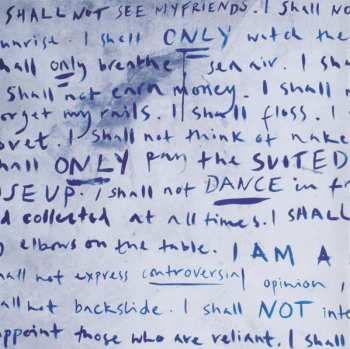 SHALL NOT SEE MY FRIENDS. I shall no
unrise. I shall ONLY watch the
hall only breathe sea air. I sha
I shall not earn money. I shall n
orget my nails. I shall floss. I
ovet. I shall not think of nake
hall ONLY pay the SUITED
SE UP. I shall not DANCE in fr
d collected at all times. I SHALL
elbows on the table. I AM A
hall not express controversial opinion,
all not backslide. I shall NOT inte
appoint those who are reliant. I shall